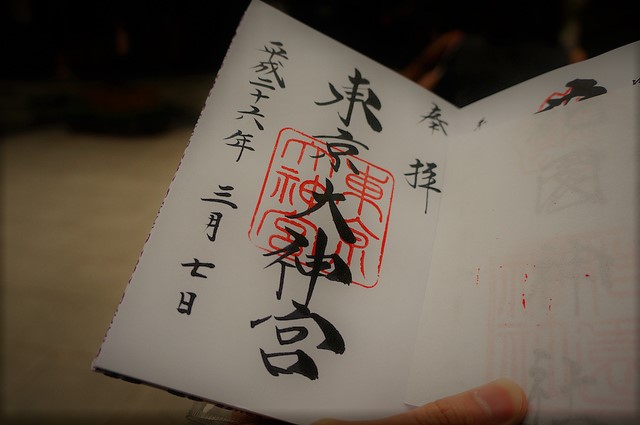 奉拝
東京大神宮
東京大神宮
平成二十六年 三月 七日